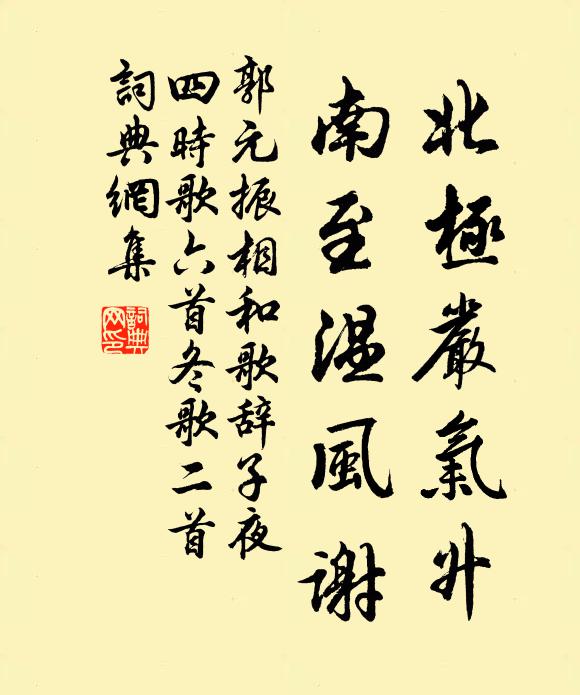 北極嚴氣升
南至溫風謝
郭元振相和歌辞子夜
四時歌六首冬歌二首
詞典網集
詞典
网印